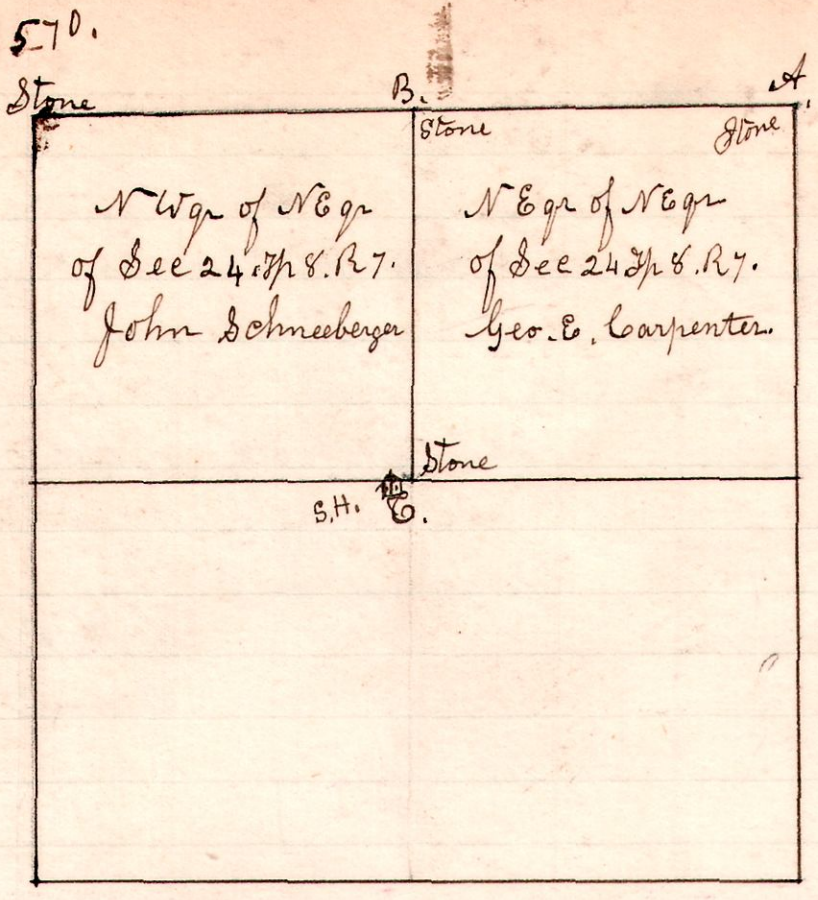 570.
Stone
B.
A.
Stone
Stone
N W qr of N E qr
of Sec 24. Tp 8. R 7.
John Schneeberger
N E qr of N E qr
of Sec 24 Tp 8. R 7.
Geo. E. Carpenter.
Stone
S.H.
C.